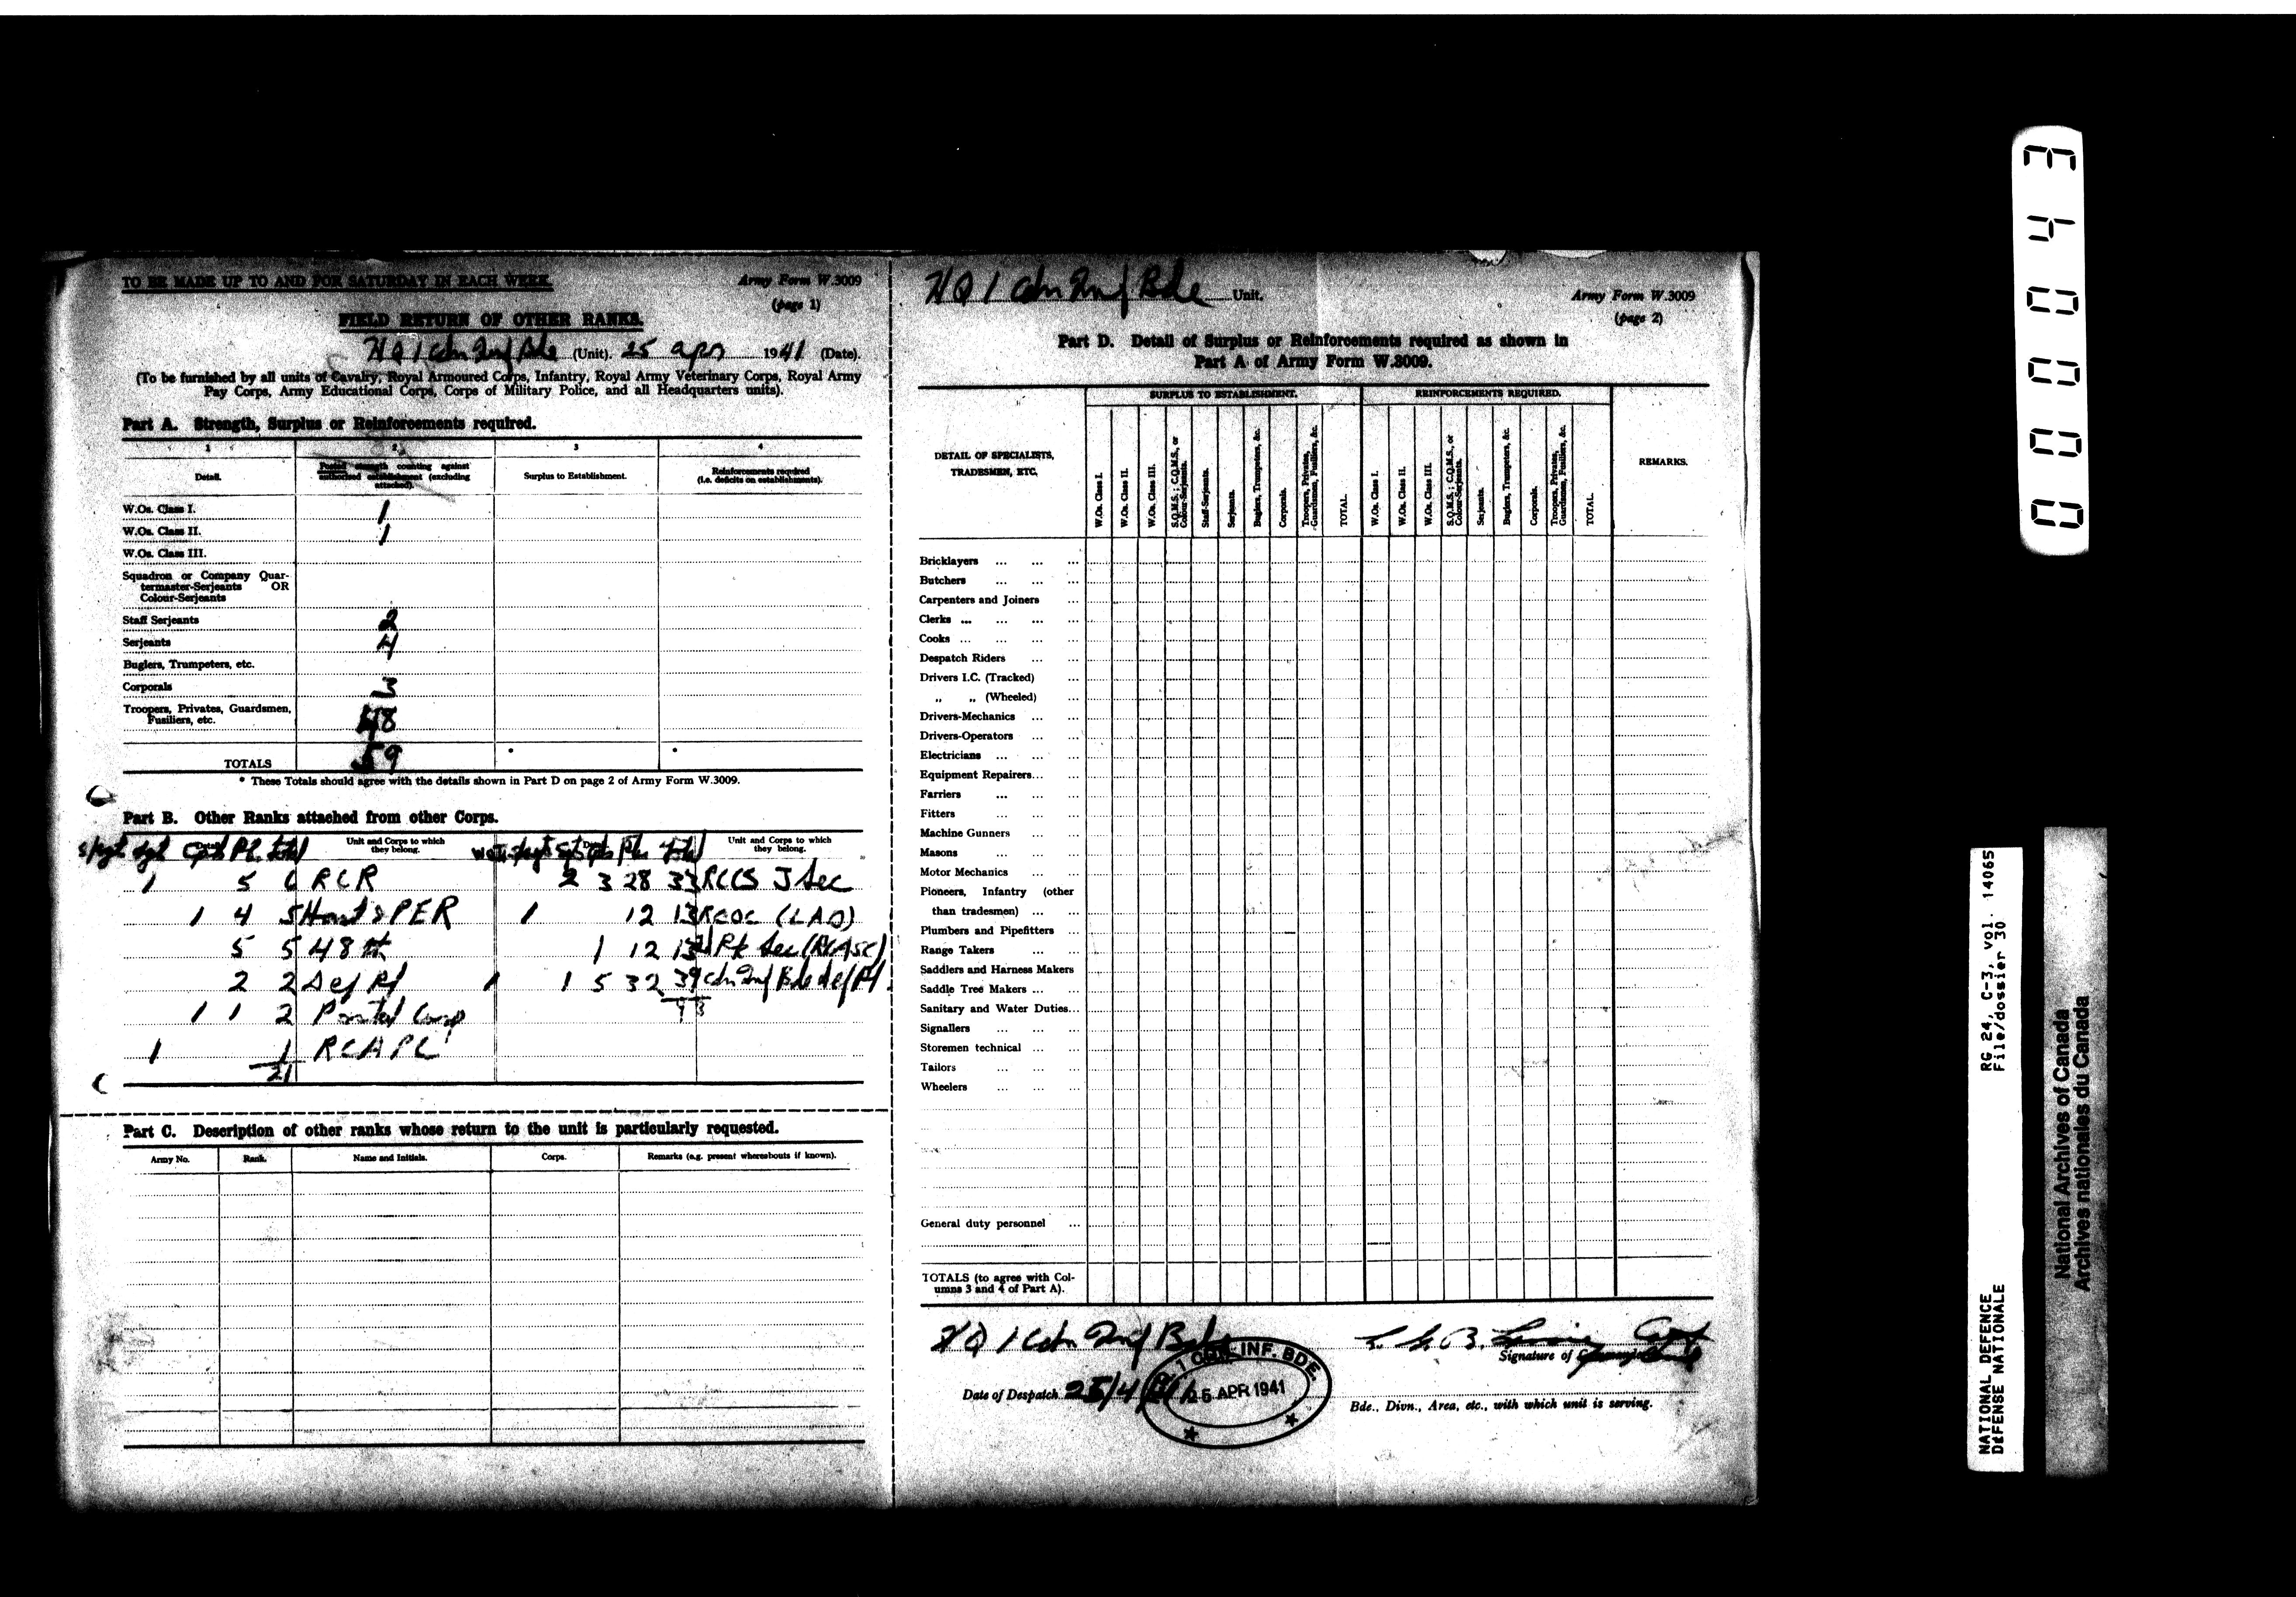 TO BE MADE UP TO AND FOR SATURDAY IN EACH WEEK.
Army Form W.3009
(page 1)
FIELD RETURN OF OTHER RANKS.
HQ 1 Cdn Inf Bde (Unit). 25 Apr 1941 (Date).
(To be furnished by all units of Cavalry, Royal Armoured Corps, Infantry, Royal Army Veterinary Corps, Royal Army
Pay Corps, Army Educational Corps, Corps of Military Police, and all Headquarters units).
Part A. Strength, Surplus or Reinforcements required.
1 2 3 4
Detail.
Posted strength counting against
authorised establishment (excluding
attached).
Surplus to Establishment.
Reinforcements required
(i.e. deficits on establishments).
W.Os. Class I. 1
W.Os. Class II. 1
W.Os. Class III.
Squadron or Company Quar-
termaster-Serjeants OR
Colour-Serjeants
Staff Serjeants 2
Serjeants 4
Buglers, Trumpeters, etc.
Corporals 3
Troopers, Privates, Guardsmen,
Fusiliers, etc. 48
TOTALS 59 * *
* These Totals should agree with the details shown in Part D on page 2 of Army Form W.3009.
Part B. Other Ranks attached from other Corps.
S/Sgt Sgt Cpl Pte Total
Unit and Corps to which
they belong.
Unit and Corps to which
they belong.
1 5 6 RCR 2 3 28 33 RCCS J Sec
1 4 5 Hast & PER 1 12 13 RCOC (LAD)
5 5 48th 1 12 13 Pk Sec (RCASC)
2 2 Def Pl 1 1 5 32 39 Cdn Inf Bde Def Pl.
1 1 2 Postal Corp 98
1 1 RCAPC
21
Part C. Description of other ranks whose return to the unit is particularly requested.
Army No. Rank. Name and Initials. Corps. Remarks (e.g. present whereabouts if known).
HQ 1 Cdn Inf Bde Unit.
Army Form W.3009
(page 2)
Part D. Detail of Surplus or Reinforcements required as shown in
Part A of Army Form W.3009.
DETAIL OF SPECIALISTS,
TRADESMEN, ETC.
SURPLUS TO ESTABLISHMENT.
REINFORCEMENTS REQUIRED.
REMARKS.
W.Os. Class I.
W.Os. Class II.
W.Os. Class III.
S.Q.M.S.; C.Q.M.S., or
Colour-Serjeants.
Staff-Serjeants.
Serjeants.
Buglers, Trumpeters, &c.
Corporals.
Troopers, Privates,
Guardsmen, Fusiliers, &c.
TOTAL.
W.Os. Class I.
W.Os. Class II.
W.Os. Class III.
S.Q.M.S.; C.Q.M.S., or
Colour-Serjeants.
Serjeants.
Buglers, Trumpeters, &c.
Corporals.
Troopers, Privates,
Guardsmen, Fusiliers, &c.
TOTAL.
Bricklayers ... ... ...
Butchers ... ... ...
Carpenters and Joiners ...
Clerks ... ... ... ...
Cooks ... ... ... ...
Despatch Riders ... ...
Drivers I.C. (Tracked) ...
„ „ (Wheeled) ...
Drivers-Mechanics ... ...
Drivers-Operators ... ...
Electricians ... ... ...
Equipment Repairers... ...
Farriers ... ... ...
Fitters ... ... ...
Machine Gunners ... ...
Masons ... ... ...
Motor Mechanics ... ...
Pioneers, Infantry (other
than tradesmen) ... ...
Plumbers and Pipefitters ...
Range Takers ... ...
Saddlers and Harness Makers
Saddle Tree Makers ... ...
Sanitary and Water Duties...
Signallers ... ... ...
Storemen technical ... ...
Tailors ... ... ...
Wheelers ... ... ...
General duty personnel ...
TOTALS (to agree with Col-
umns 3 and 4 of Part A).
HQ 1 Cdn Inf Bde
Signature of
Date of Despatch 25/4/41
1 CDN. INF. BDE
25 APR 1941
Bde., Divn., Area, etc., with which unit is serving.
00043
NATIONAL DEFENCE RG 24, C-3, vol. 14065
DÉFENSE NATIONALE File/dossier 30
National Archives of Canada
Archives nationales du Canada